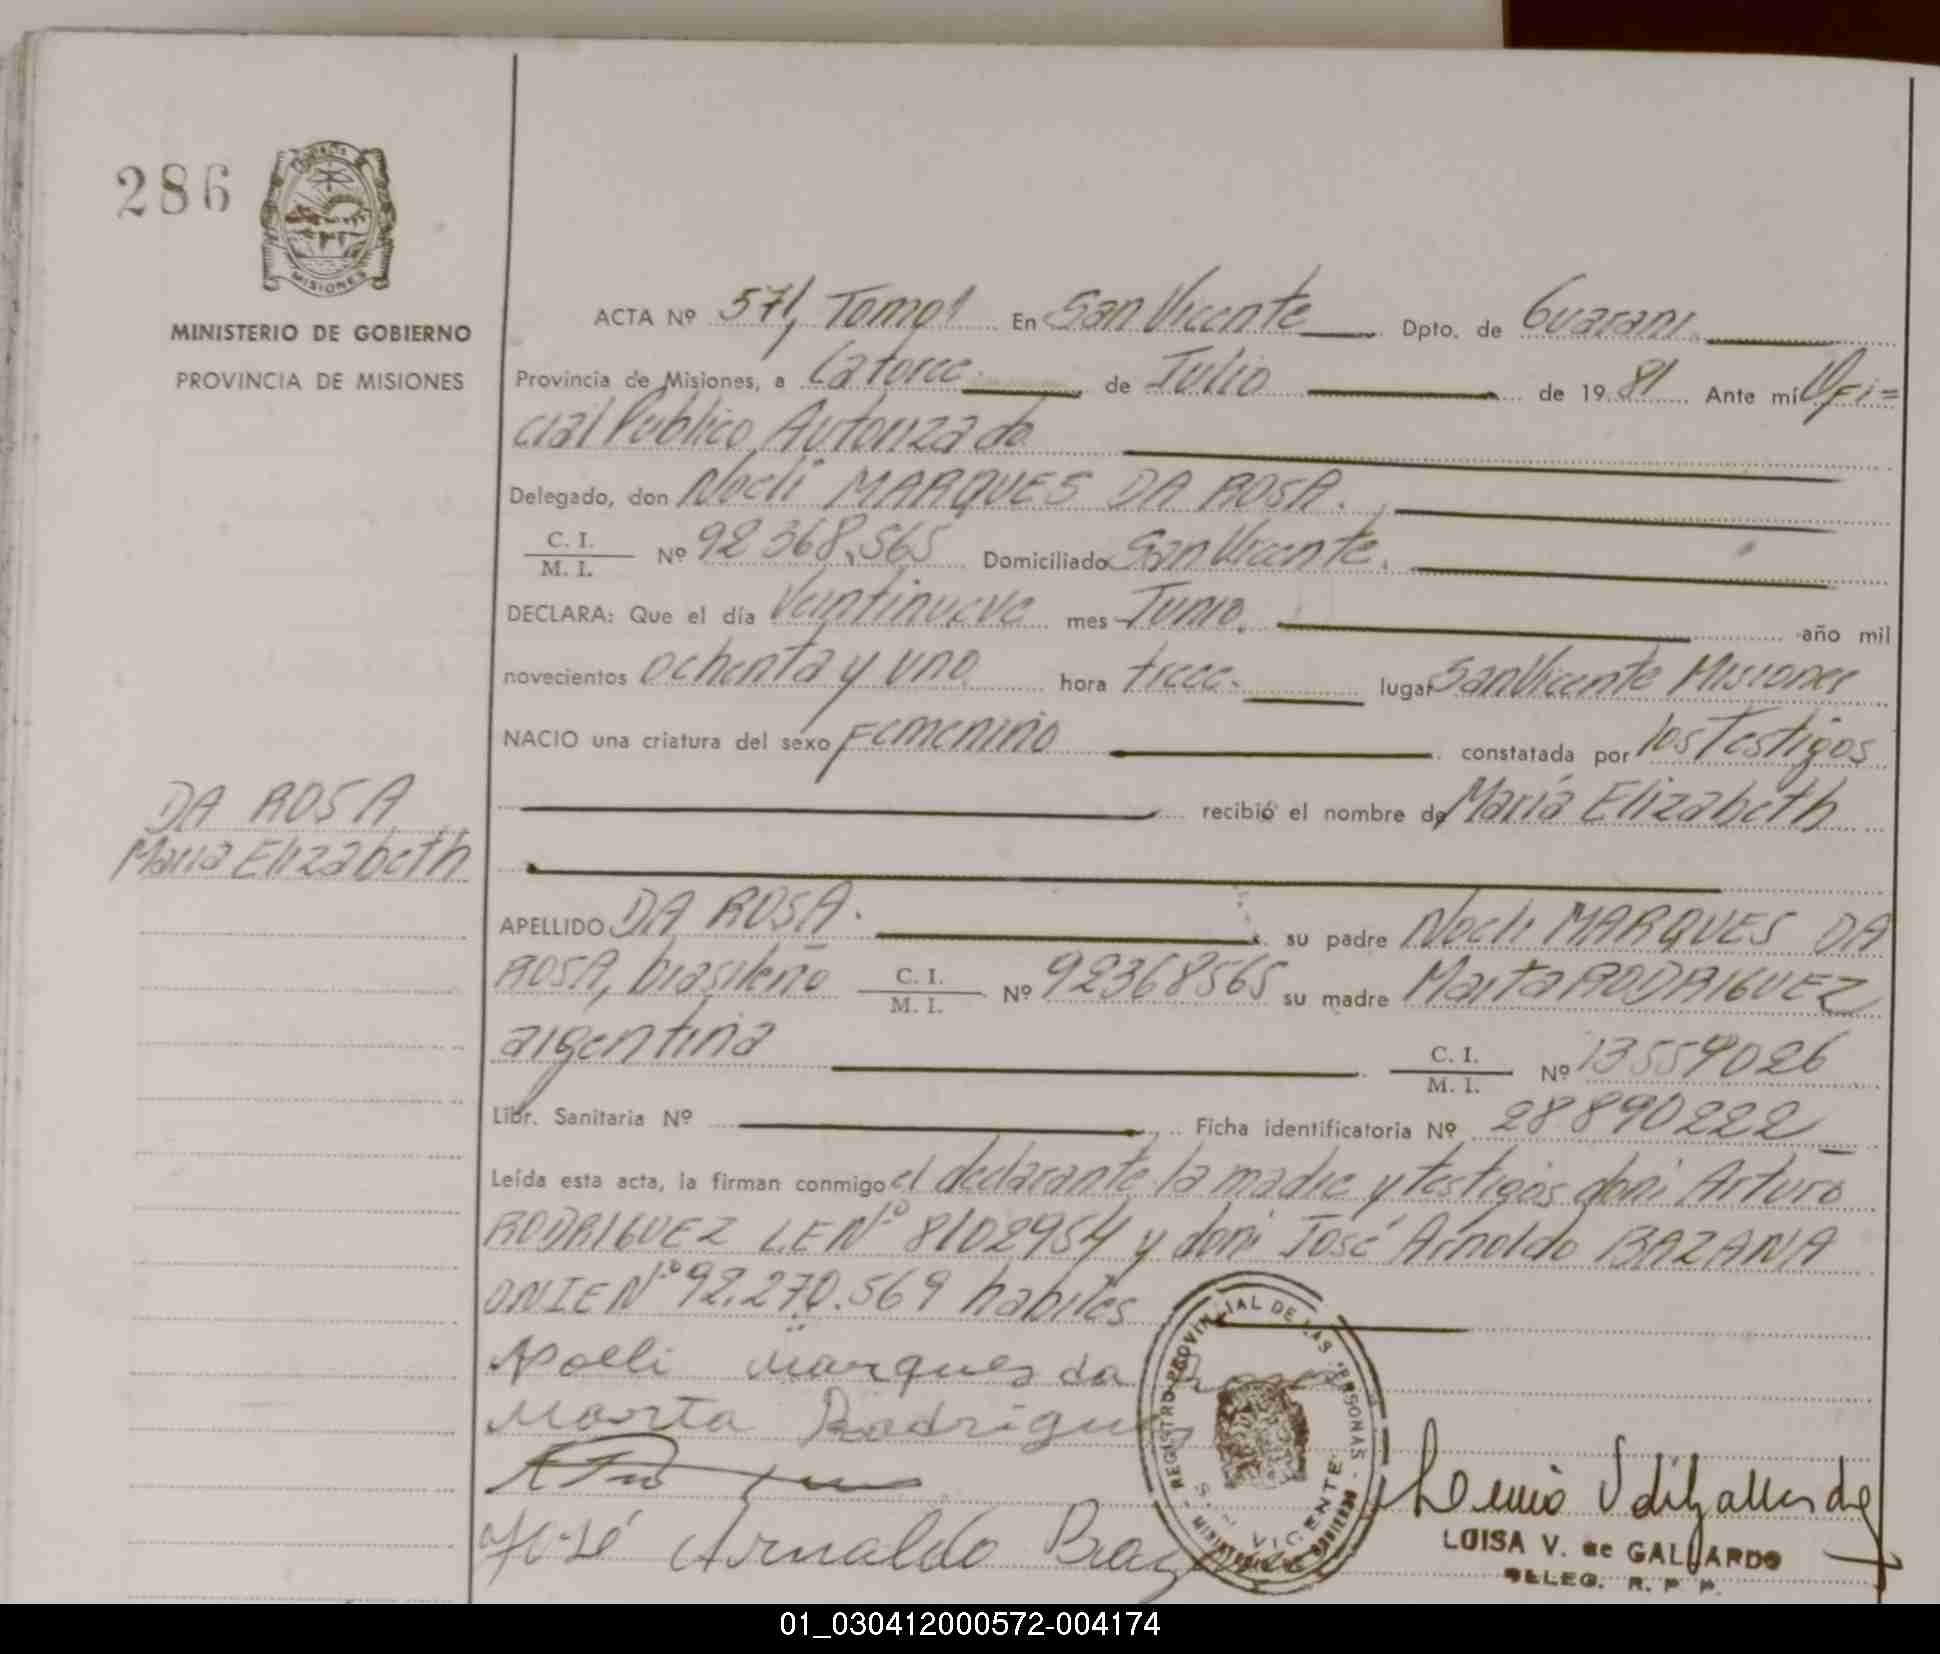 286
MISIONES
MINISTERIO DE GOBIERNO
PROVINCIA DE MISIONES
ACTA Nº 571, Tomo 1 En San Vicente Dpto. de Guarani
Provincia de Misiones, a Catorce de Julio de 1981 Ante mí Ofi=
cial Público Autorizado
Delegado, don Noeli MARQUES DA ROSA.
C. I.
M. I. Nº 92368.565 Domiciliado San Vicente.
DECLARA: Que el día Veintinueve mes Junio. año mil
novecientos ochenta y uno hora trece. lugar San Vicente Misiones
NACIO una criatura del sexo Femenino constatada por los Testigos
recibió el nombre de María Elizabeth
DA ROSA
María Elizabeth
APELLIDO DA ROSA. su padre Noeli MARQUES DA
ROSA, brasileño C. I. M. I. Nº 92368565 su madre Marta RODRIGUEZ
argentina C. I. M. I. Nº 13559026
Libr. Sanitaria Nº Ficha identificatoria Nº 28890222
Leída esta acta, la firman conmigo el declarante la madre y testigos don: Arturo
RODRIGUEZ L.E Nº 8102954 y don: José Arnoldo BAZANA
DNIE Nº 92.270.569 habiles
Noeli Marques da Rosa
Marta Rodriguez
José Arnaldo
REGISTRO PROVINCIAL DE LAS PERSONAS
MINISTERIO DE GOBIERNO
S. VICENTE
LUISA V. de GALLARDO
DELEG. R. P. P.
01_030412000572-004174